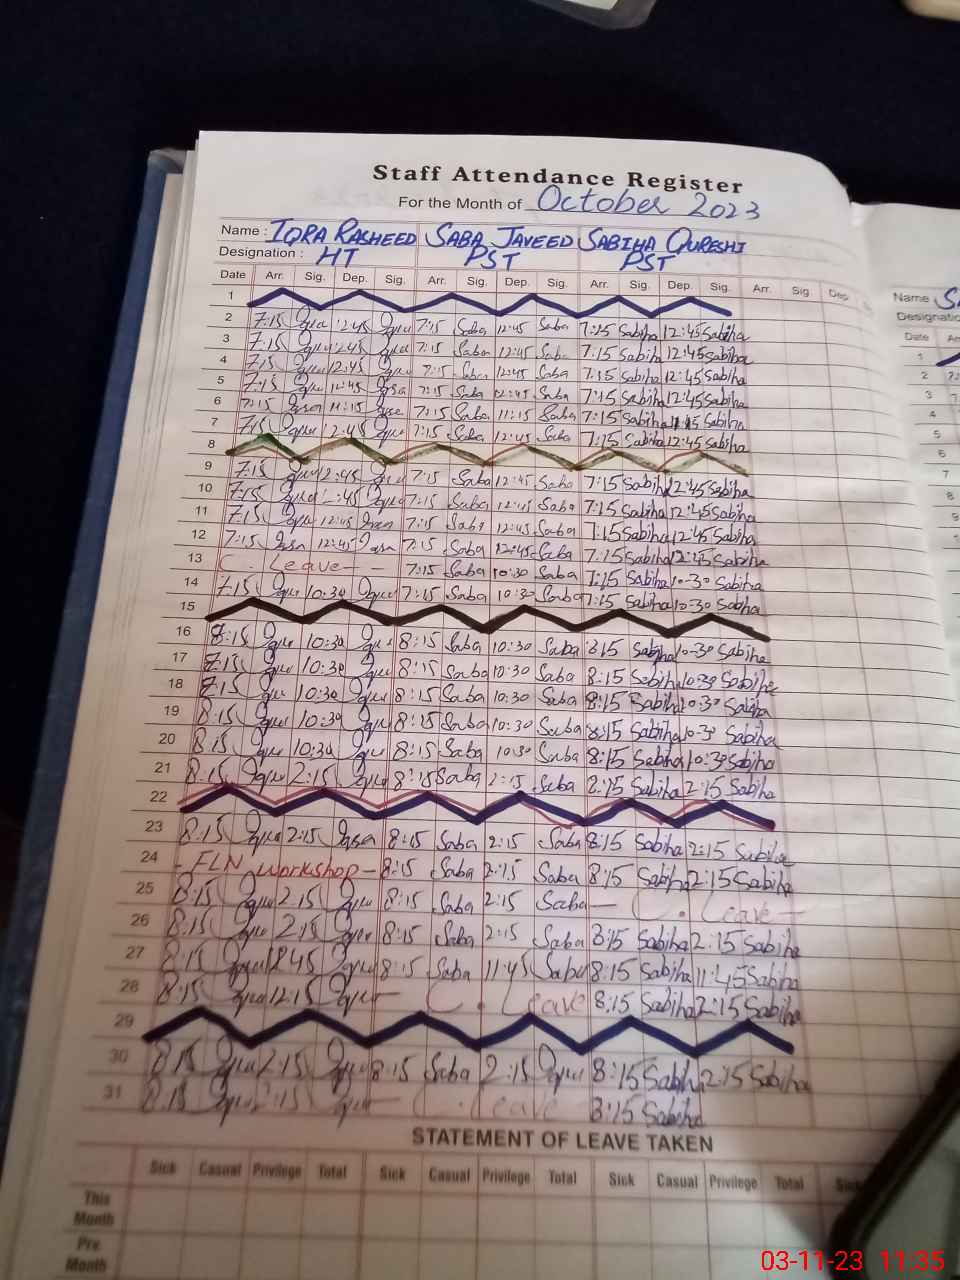 Staff Attendance Register
For the Month of October 2023
Name : IQRA RASHEED SABA JAVEED SABIHA QURESHI
Designation : HT PST PST
Date Arr. Sig. Dep. Sig. Arr. Sig. Dep. Sig. Arr. Sig. Dep. Sig. Arr. Sig Dep
1
2 7:15 Iqra 12:45 Iqra 7:15 Saba 12:45 Saba 7:15 Sabiha 12:45 Sabiha
3 7:15 Iqra 12:45 Iqra 7:15 Saba 12:45 Saba 7:15 Sabiha 12:45 Sabiha
4 7:15 Iqra 12:45 Iqra 7:15 Saba 12:45 Saba 7:15 Sabiha 12:45 Sabiha
5 7:15 Iqra 12:45 Iqra 7:15 Saba 12:45 Saba 7:15 Sabiha 12:45 Sabiha
6 7:15 Iqra 11:15 Iqra 7:15 Saba 11:15 Saba 7:15 Sabiha 11:15 Sabiha
7 7:15 Iqra 12:45 Iqra 7:15 Saba 12:45 Saba 7:15 Sabiha 12:45 Sabiha
8
9 7:15 Iqra 12:45 Iqra 7:15 Saba 12:45 Saba 7:15 Sabiha 12:45 Sabiha
10 7:15 Iqra 12:45 Iqra 7:15 Saba 12:45 Saba 7:15 Sabiha 12:45 Sabiha
11 7:15 Iqra 12:45 Iqra 7:15 Saba 12:45 Saba 7:15 Sabiha 12:45 Sabiha
12 7:15 Iqra 12:45 Iqra 7:15 Saba 12:45 Saba 7:15 Sabiha 12:45 Sabiha
13 C. Leave - - 7:15 Saba 10:30 Saba 7:15 Sabiha 10:30 Sabiha
14 7:15 Iqra 10:30 Iqra 7:15 Saba 10:30 Saba 7:15 Sabiha 10:30 Sabiha
15
16 8:15 Iqra 10:30 Iqra 8:15 Saba 10:30 Saba 8:15 Sabiha 10:30 Sabiha
17 7:15 Iqra 10:30 Iqra 8:15 Saba 10:30 Saba 8:15 Sabiha 10:30 Sabiha
18 7:15 Iqra 10:30 Iqra 8:15 Saba 10:30 Saba 8:15 Sabiha 10:30 Sabiha
19 8:15 Iqra 10:30 Iqra 8:15 Saba 10:30 Saba 8:15 Sabiha 10:30 Sabiha
20 8:15 Iqra 10:30 Iqra 8:15 Saba 10:30 Saba 8:15 Sabiha 10:30 Sabiha
21 8:15 Iqra 2:15 Iqra 8:15 Saba 2:15 Saba 8:15 Sabiha 2:15 Sabiha
22
23 8:15 Iqra 2:15 Iqra 8:15 Saba 2:15 Saba 8:15 Sabiha 2:15 Sabiha
24 - FLN workshop - 8:15 Saba 2:15 Saba 8:15 Sabiha 2:15 Sabiha
25 8:15 Iqra 2:15 Iqra 8:15 Saba 2:15 Saba - C. Leave -
26 8:15 Iqra 2:15 Iqra 8:15 Saba 2:15 Saba 8:15 Sabiha 2:15 Sabiha
27 8:15 Iqra Iqra 8:15 Saba 11:45 Saba 8:15 Sabiha 11:45 Sabiha
28 8:15 Iqra 12:15 Iqra - C. Leave 8:15 Sabiha 2:15 Sabiha
29
30 8:15 Iqra 2:15 Iqra 8:15 Saba 2:15 Iqra 8:15 Sabih 2:15 Sabiha
31 8:15 Iqra 2:15 Iqra - C. Leave 8:15 Sabiha
STATEMENT OF LEAVE TAKEN
Sick Casual Privilege Total Sick Casual Privilege Total Sick Casual Privilege Total Sick
This Month
Pre. Month
Name
Designatio
Date
1
2
3
4
5
6
7
8
9
10
11
03-11-23 11:35